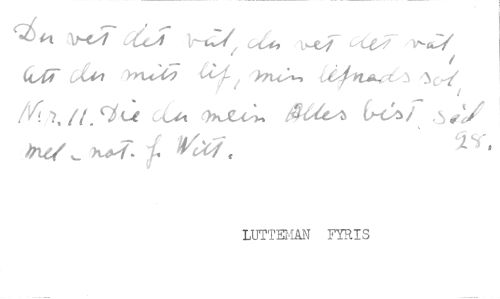 Du vet det väl, du vet det väl,
att du mits lif, min lifnads sol,
N:r. 11. Die du mein Alles bist, sid
mel. not. J. Witt. 28.
LUTTEMAN FYRIS